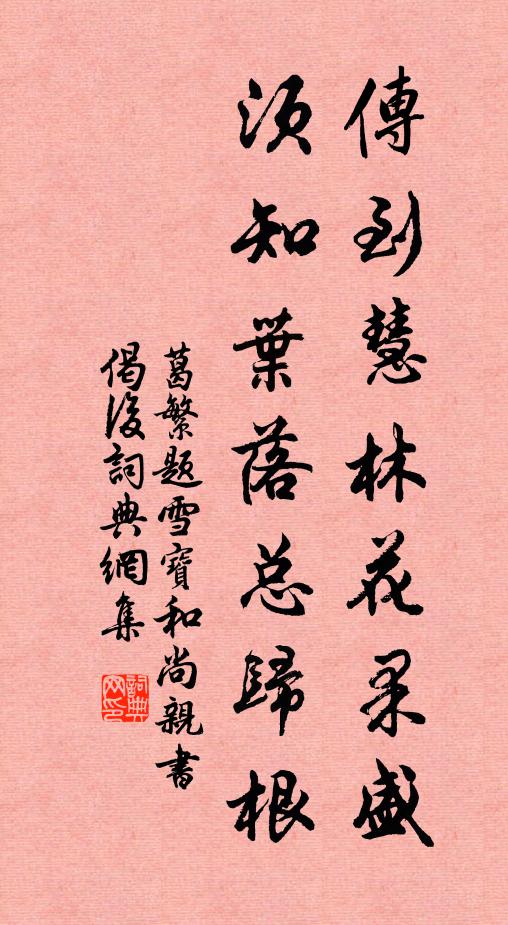 傳到慧林花果盛
須知葉落总歸根
葛繁题雪寶和尚親書
偈後詞典網集
詞典网印